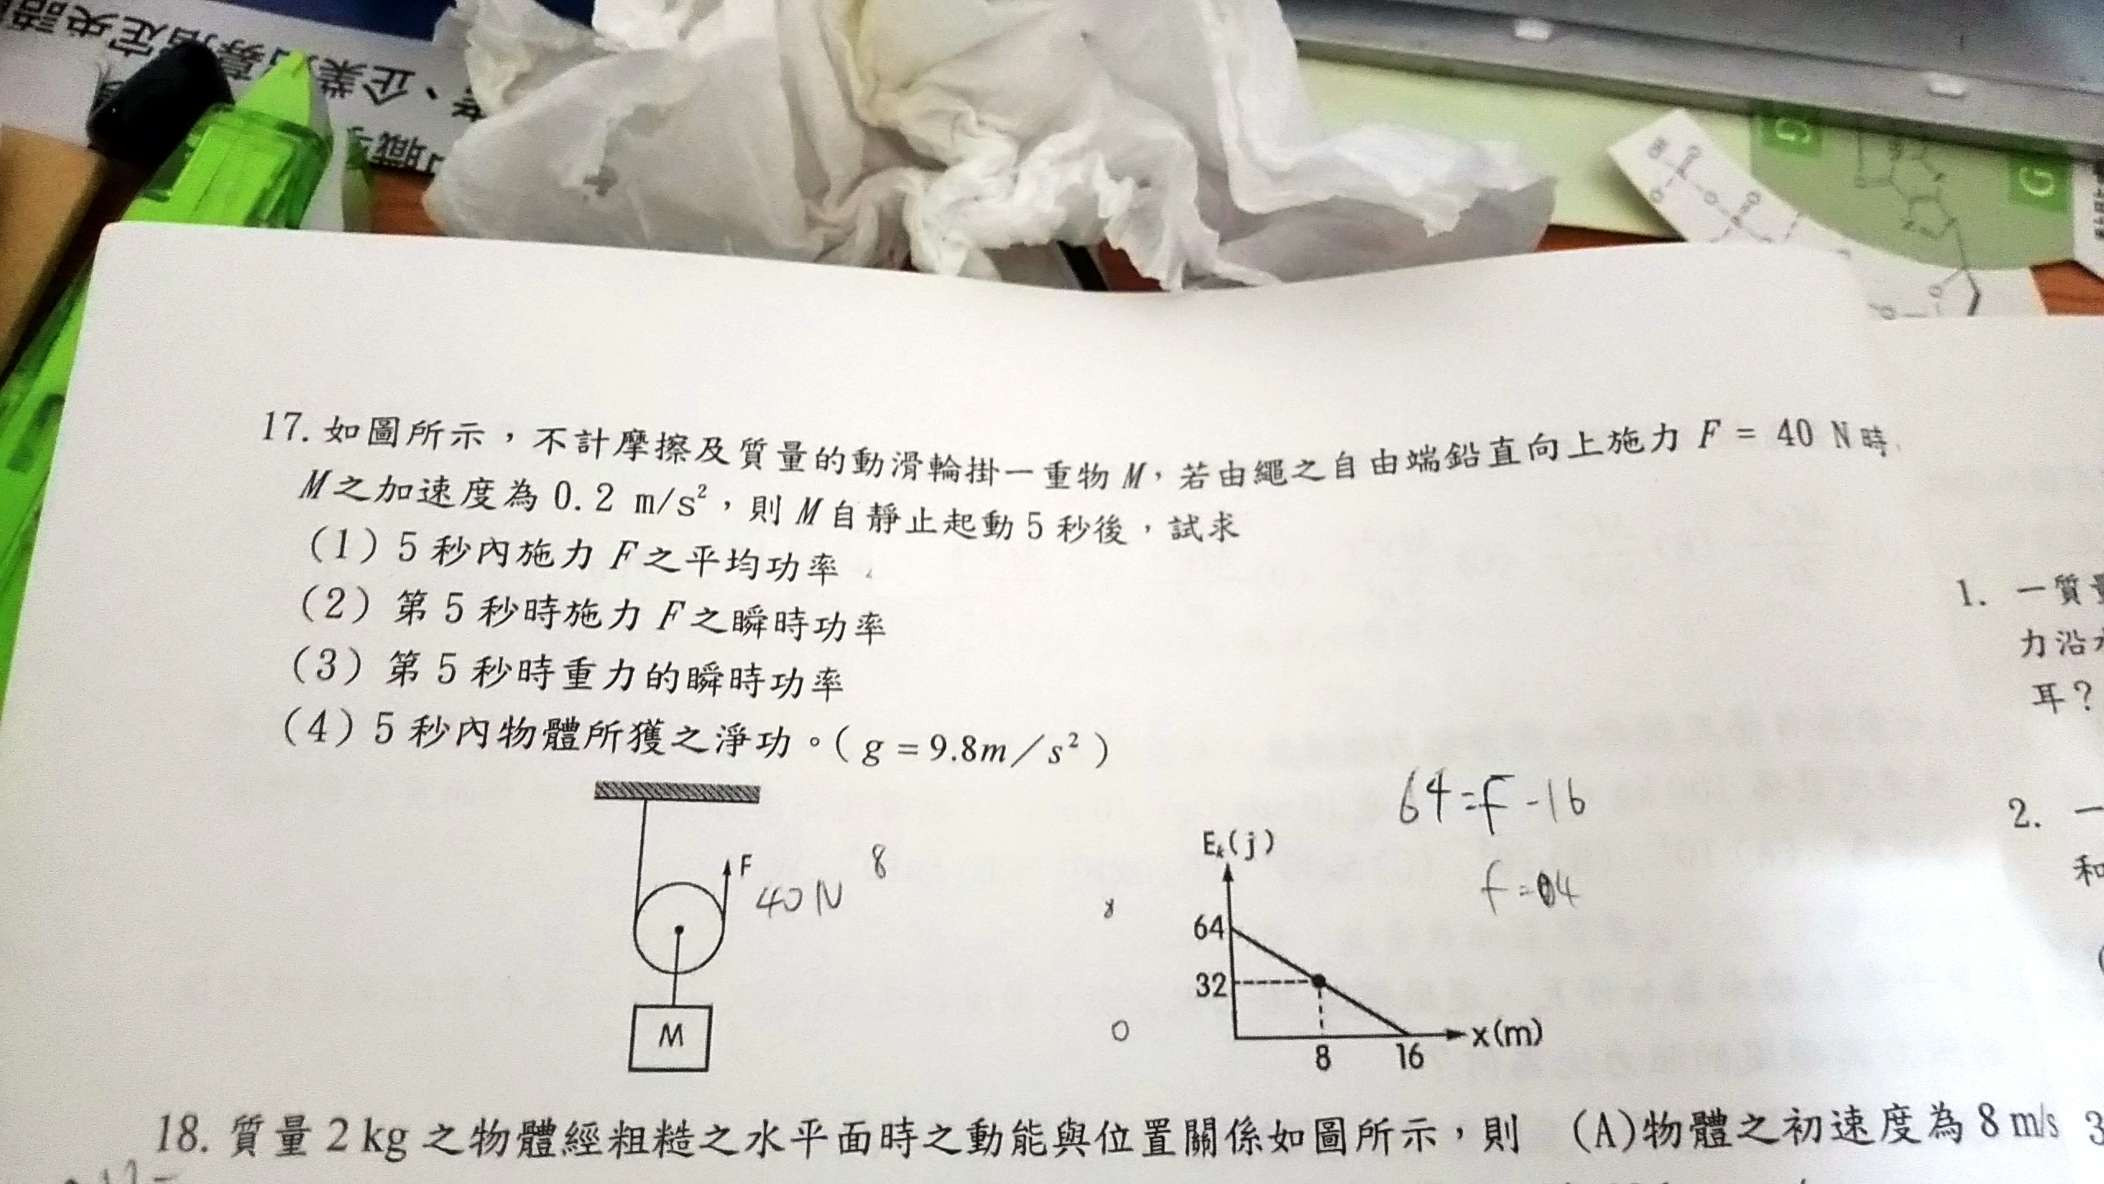 、企業
職
G
G
17. 如圖所示，不計摩擦及質量的動滑輪掛一重物 M，若由繩之自由端鉛直向上施力 F = 40 N 時
M 之加速度為 0.2 m/s²，則 M 自靜止起動 5 秒後，試求
(1) 5 秒內施力 F 之平均功率
(2) 第 5 秒時施力 F 之瞬時功率
(3) 第 5 秒時重力的瞬時功率
(4) 5 秒內物體所獲之淨功。( g = 9.8m／s² )
F
40 N
8
M
64=F-16
f=04
Eₖ(j)
64
32
8
16
x(m)
0
18. 質量 2 kg 之物體經粗糙之水平面時之動能與位置關係如圖所示，則 (A)物體之初速度為 8 m/s
1. 一質
力沿
耳？
2. 一
和
3